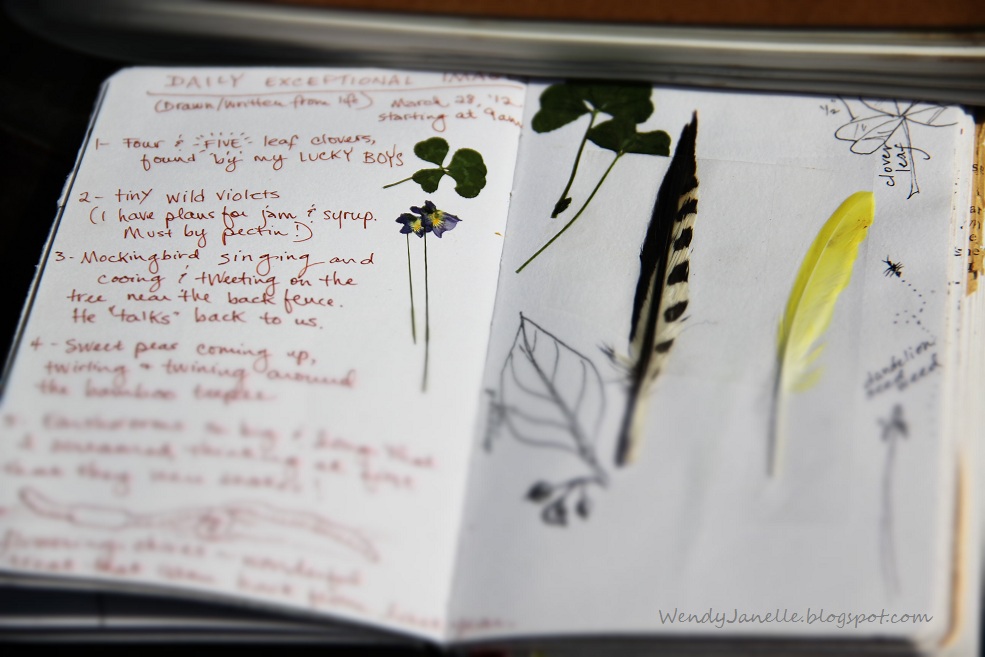 DAILY EXCEPTIONAL
(Drawn/written from life) March 28, '12
starting at 9am
1- Four & "FIVE" leaf clovers,
found by my LUCKY BOYS
2- tiny wild violets
(I have plans for jam & syrup.
Must by pectin!)
3- Mockingbird singing and
cooing & tweeting on the
tree near the back fence.
He "talks" back to us.
4- Sweet peas coming up,
twirling + twining around
the bamboo
5- Earthworms so big & long that
I screamed thinking at first
that they were snakes!
1/2
clover
leaf
dandelion
seed
WendyJanelle.blogspot.com